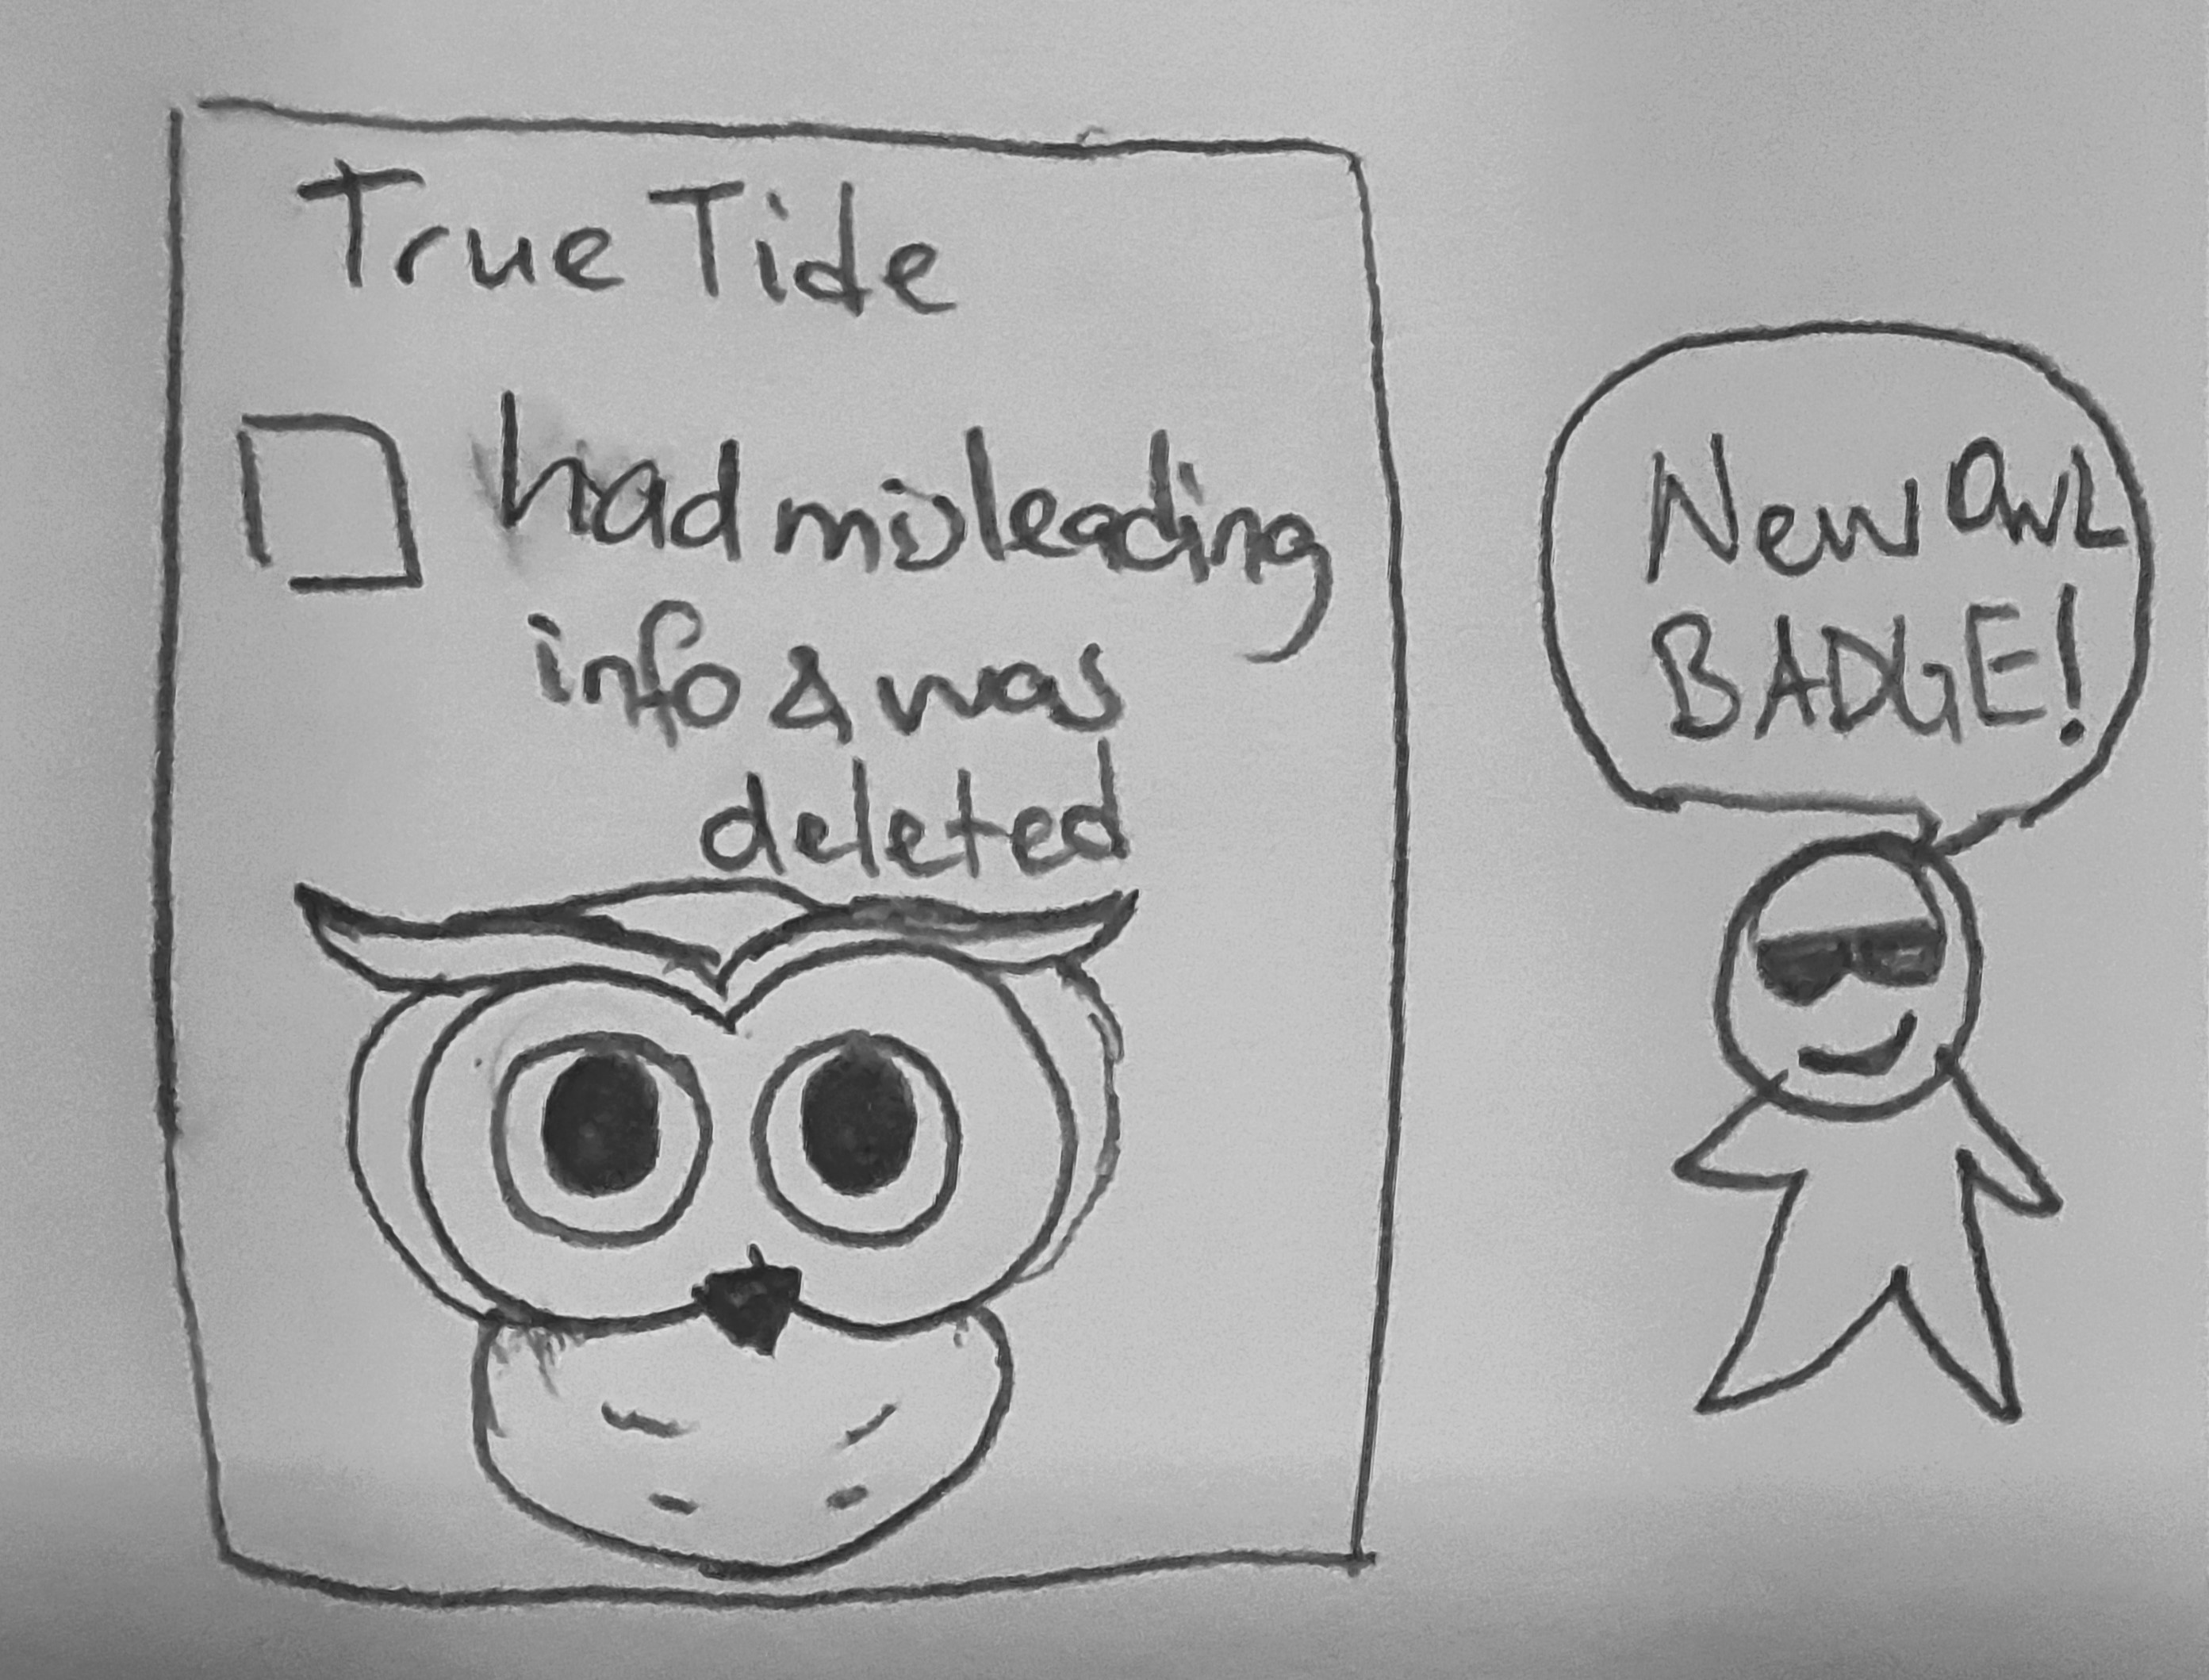 True Tide
had misleading
info & was
deleted
New OWL
BADGE!